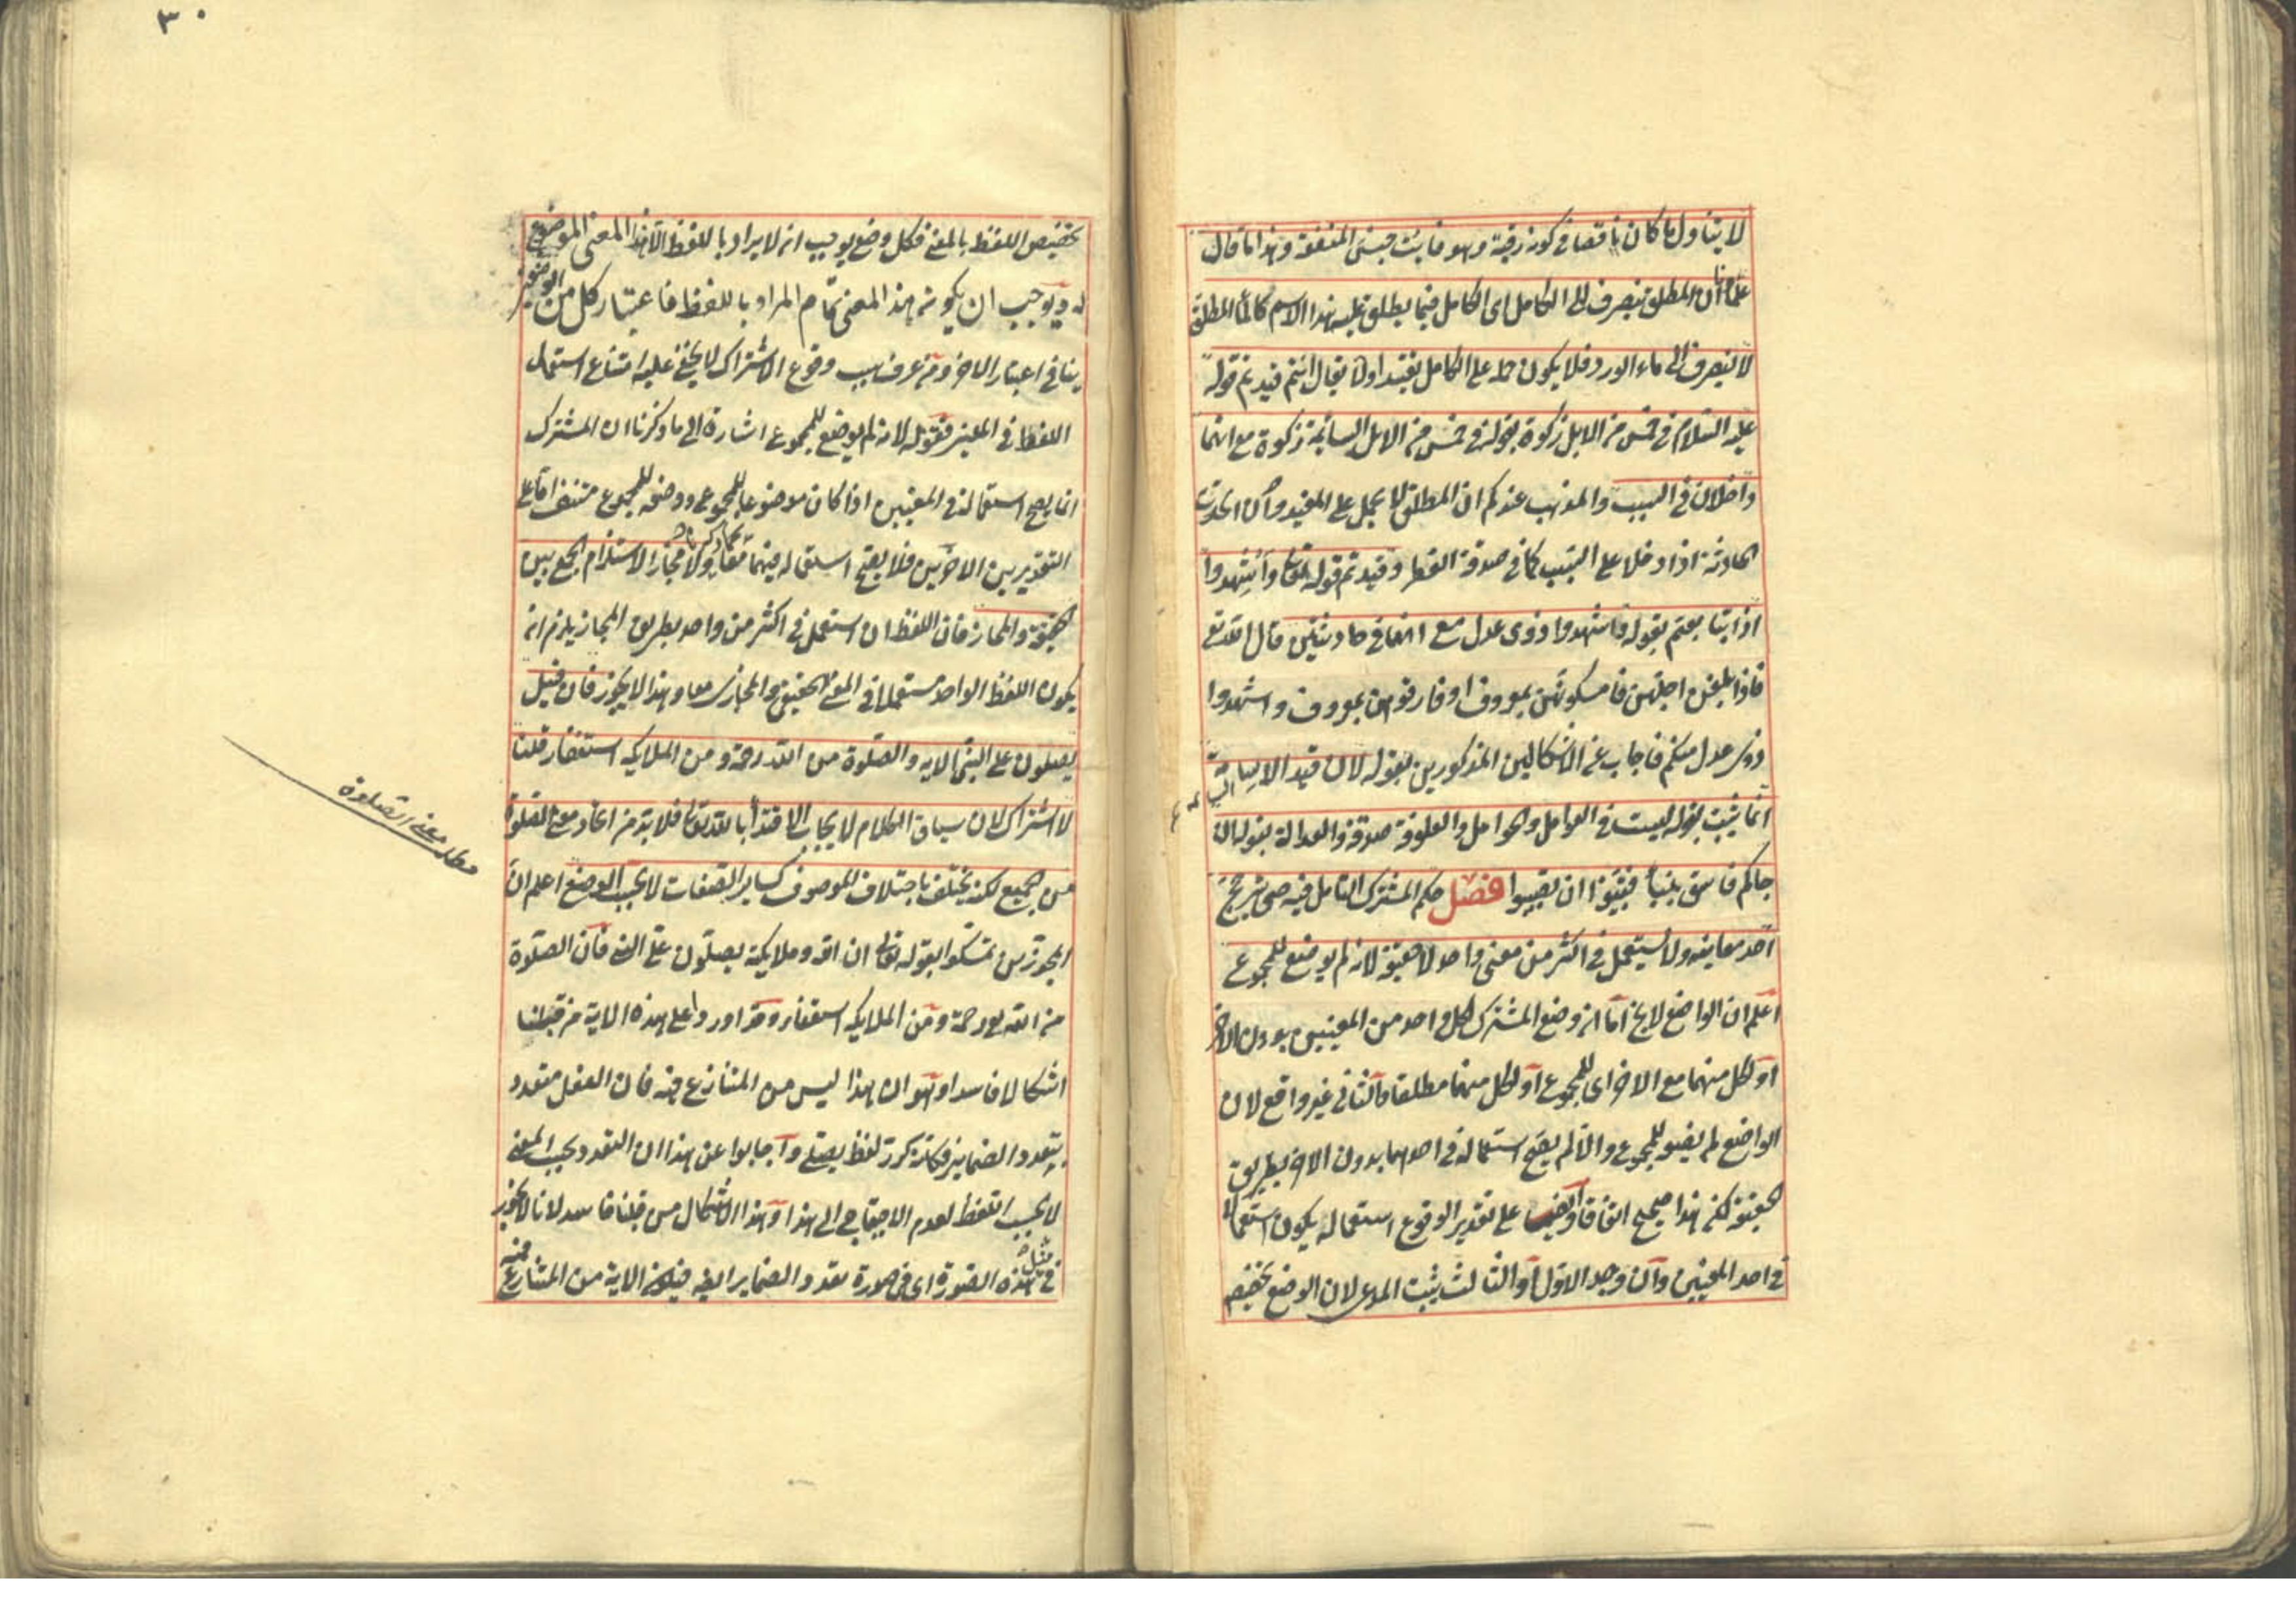 لا يتناول ما كان ناقصا في كونه رقبة وهو فايت جنس المنفعة وهذا ما قال
علماؤنا ان المطلق ينصرف الى الكامل اى الكامل فيما يطلق عليه هذا الاسم كالماء المطلق
لا ينصرف الى ماء الورد فلا يكون حمله على الكامل تقييدا ولا يقال انتم قيدتم قوله
عليه السلام في خمس من الابل زكوة بقوله في خمس من الابل السائمة زكوة مع انهما
داخلان في السبب والمذهب عندكم ان المطلق لا يحمل على المقيد وان اتحدت
الحادثة اذا دخلا على السبب كما في صدقة الفطر وقيدتم قوله تعالى واشهدوا
اذا تبايعتم بقوله واشهدوا ذوى عدل مع انهما في حادثتين قال الله تعالى
فاذا بلغن اجلهن فامسكوهن بمعروف او فارقوهن بمعروف واشهدوا
ذوى عدل منكم فاجاب عن الاشكالين المذكورين بقوله لان قيد الاسامة
انما يثبت بقوله ليست في العوامل والحوامل والعلوفة صدقة والعدالة بقوله ان
جاكم فاسق بنبأ فتبينوا ان تصيبوا فصل حكم المشترك التامل فيه حتى يترجح
احد معانيه ولا يستعمل في اكثر من معنى واحد لا حقيقة لانه لم يوضع للمجموع
اعلم ان الواضع لا يخ اما ان وضع المشترك لكل واحد من المعنيين بدون الاخر
او لكل منهما مع الاخر اى للمجموع او لكل منهما مطلقا والثانى غير واقع لان
الواضع لم يضعه للمجموع والا لم يصح استعماله في احدهما بدون الاخر بطريق
الحقيقة لكن هذا صحيح اتفاقا وايضا على تقدير الوقوع استعماله يكون استعمالا
في احد المعنيين وان وجد الاول او الثالث يثبت المدعى لان الوضع تخصيص
٣٠
تخصيص اللفظ بالمعنى فكل وضع يوجب ان لا يراد باللفظ الا هذا المعنى الموضوع
له ويوجب ان يكون هذا المعنى تمام المراد باللفظ فاعتبار كل من الوضعين
ينافى اعتبار الاخر ومن عرف سبب وقوع الاشتراك لا يخفى عليه امتناع استعمال
اللفظ في المعنيين فقوله لانه لم يوضع للمجموع اشارة الى ما ذكرنا ان المشترك
انما يصح استعماله في المعنيين اذا كان موضوعا للمجموع ووضعه للمجموع منتف اما على
التقديرين الاخرين فلا يصح استعماله فيهما كما ذكرنا ولا مجازا لاستلزام الجمع بين
الحقيقة والمجاز فان اللفظ ان استعمل في اكثر من واحد بطريق المجاز يلزم ان
يكون اللفظ الواحد مستعملا في المعنى الحقيقى والمجازى معا وهذا لا يجوز فان قيل
يصلون على النبى الاية والصلوة من الله رحمة ومن الملايكة استغفار قلنا
لا اشتراك لان سياق الكلام لايجاب الاقتدا بالله تعالى فلا بد من اتحاد معنى الصلوة
من الجميع لكنه يختلف باختلاف الموصوف كساير الصفات لا بحسب الوضع اعلم ان
المجوزين تمسكوا بقوله تعالى ان الله وملايكته يصلون على النبى فان الصلوة
من الله رحمة ومن الملايكة استغفار وقد اوردوا على هذه الاية من قبلنا
اشكالا فاسدا وهو ان هذا ليس من المتنازع فيه فان الفعل متعدد
بتعدد الضماير فكانه كرر لفظ يصلى واجابوا عن هذا ان التعدد بحسب المعنى
لا بحسب اللفظ لعدم الاحتياج الى هذا وهذا الاشكال من قبلنا فاسد لانا لا نجوز
في مثل هذه الصورة اى في صورة تعدد الضماير ايضا فيكون الاية من المتنازع فيه
مطلب معنى الصلوة